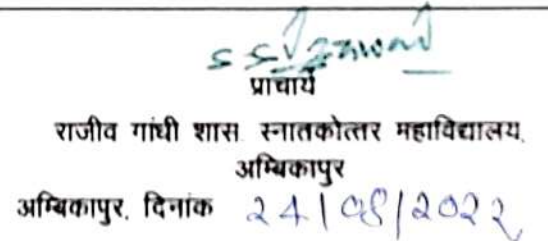 प्राचार्य
राजीव गांधी शास. स्नातकोत्तर महाविद्यालय,
अम्बिकापुर
अम्बिकापुर, दिनांक 24/08/2022